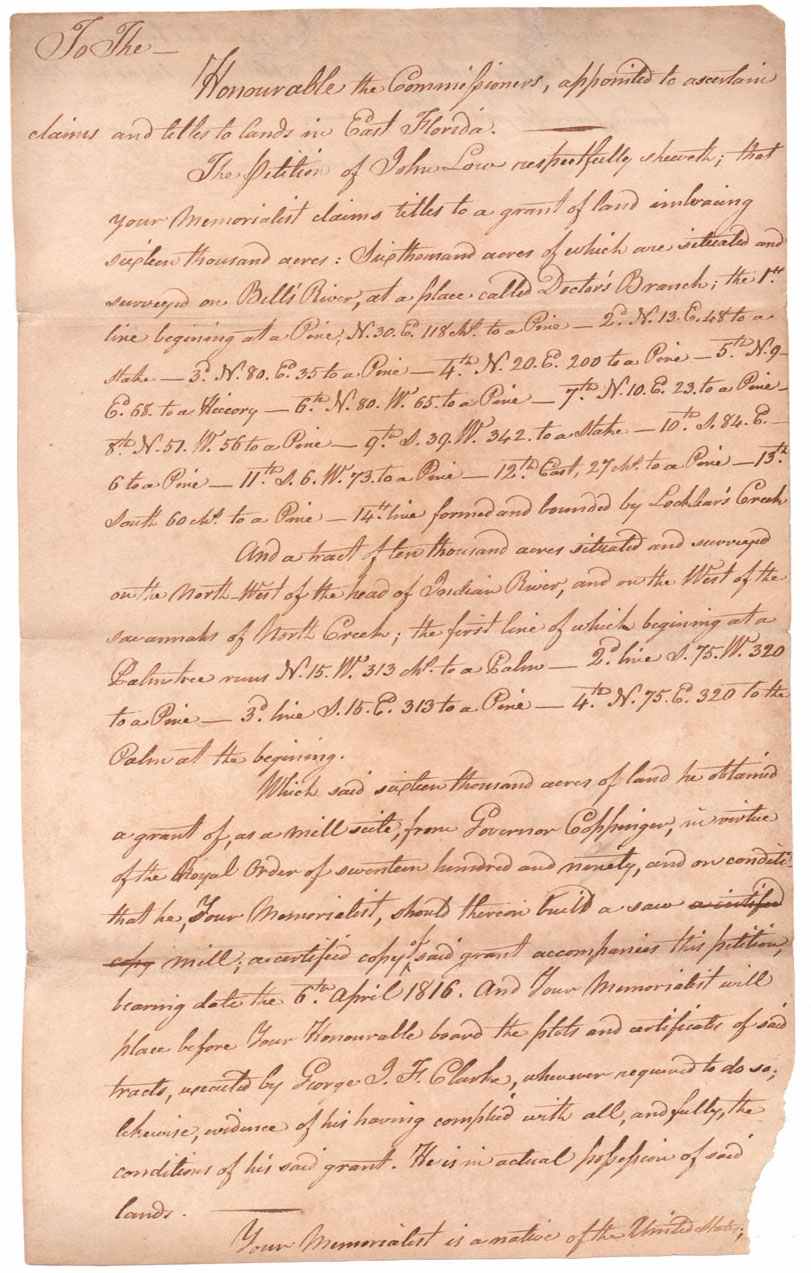 To The —
Honourable the Commissioners, appointed to ascertain
claims and titles to lands in East Florida. —
The Petition of John Low respectfully sheweth; that
your Memorialist claims titles to a grant of land imbracing
sixteen thousand acres: Six thousand acres of which are situated and
surveyed on Bell's River, at a place called Doctor's Branch; the 1st
line begining at a Pine, N. 30. E. 118 chs. to a Pine — 2d. N. 13. E. 48 to a
stake — 3d. N. 80. Ed. 35 to a Pine — 4th. N. 20. E. 200 to a Pine — 5th. N. 9-
Ed. 68. to a Hiccory — 6th N. 80. W. 65 to a Pine — 7th. N. 10. E. 23. to a Pine —
8th N. 51. W. 56 to a Pine — 9th. S. 39. W. 342. to a stake — 10th. S. 84. E. —
6 to a Pine — 11th. S. 6. W. 73. to a Pine — 12th. East, 27 chs. to a Pine — 13th.
South 60 chs. to a Pine — 14th line formed and bounded by Lochlar's Creek
And a tract of ten thousand acres situated and surveyed
on the North-West of the head of Indian River, and on the West of the
savannahs of North Creek; the first line of which begining at a
Palmtree runs N. 15. W. 313 chs. to a Palm — 2d. line S. 75. W. 320
to a Pine — 3d. line S. 15. E. 313 to a Pine — 4th. N. 75. E. 320 to the
Palm at the begining.
Which said sixteen thousand acres of land he obtained
a grant of, as a mill scite, from Governor Coppinger, in virtue
of the Royal Order of seventeen hundred and ninety, and on conditi-
that he, Your Memorialist, should therein build a saw a certified
copy mill; a certified copy of said grant accompanies this petition,
bearing date the 6th. April 1816. And Your Memorialist will
place before Your Honourable board the plots and certificates of said
tracts, executed by George J. F. Clarke, whenever required to do so;
likewise, evidence of his having complied with all, and fully, the
conditions of his said grant. He is in actual possession of said
lands. —
Your Memorialist is a native of the United States;